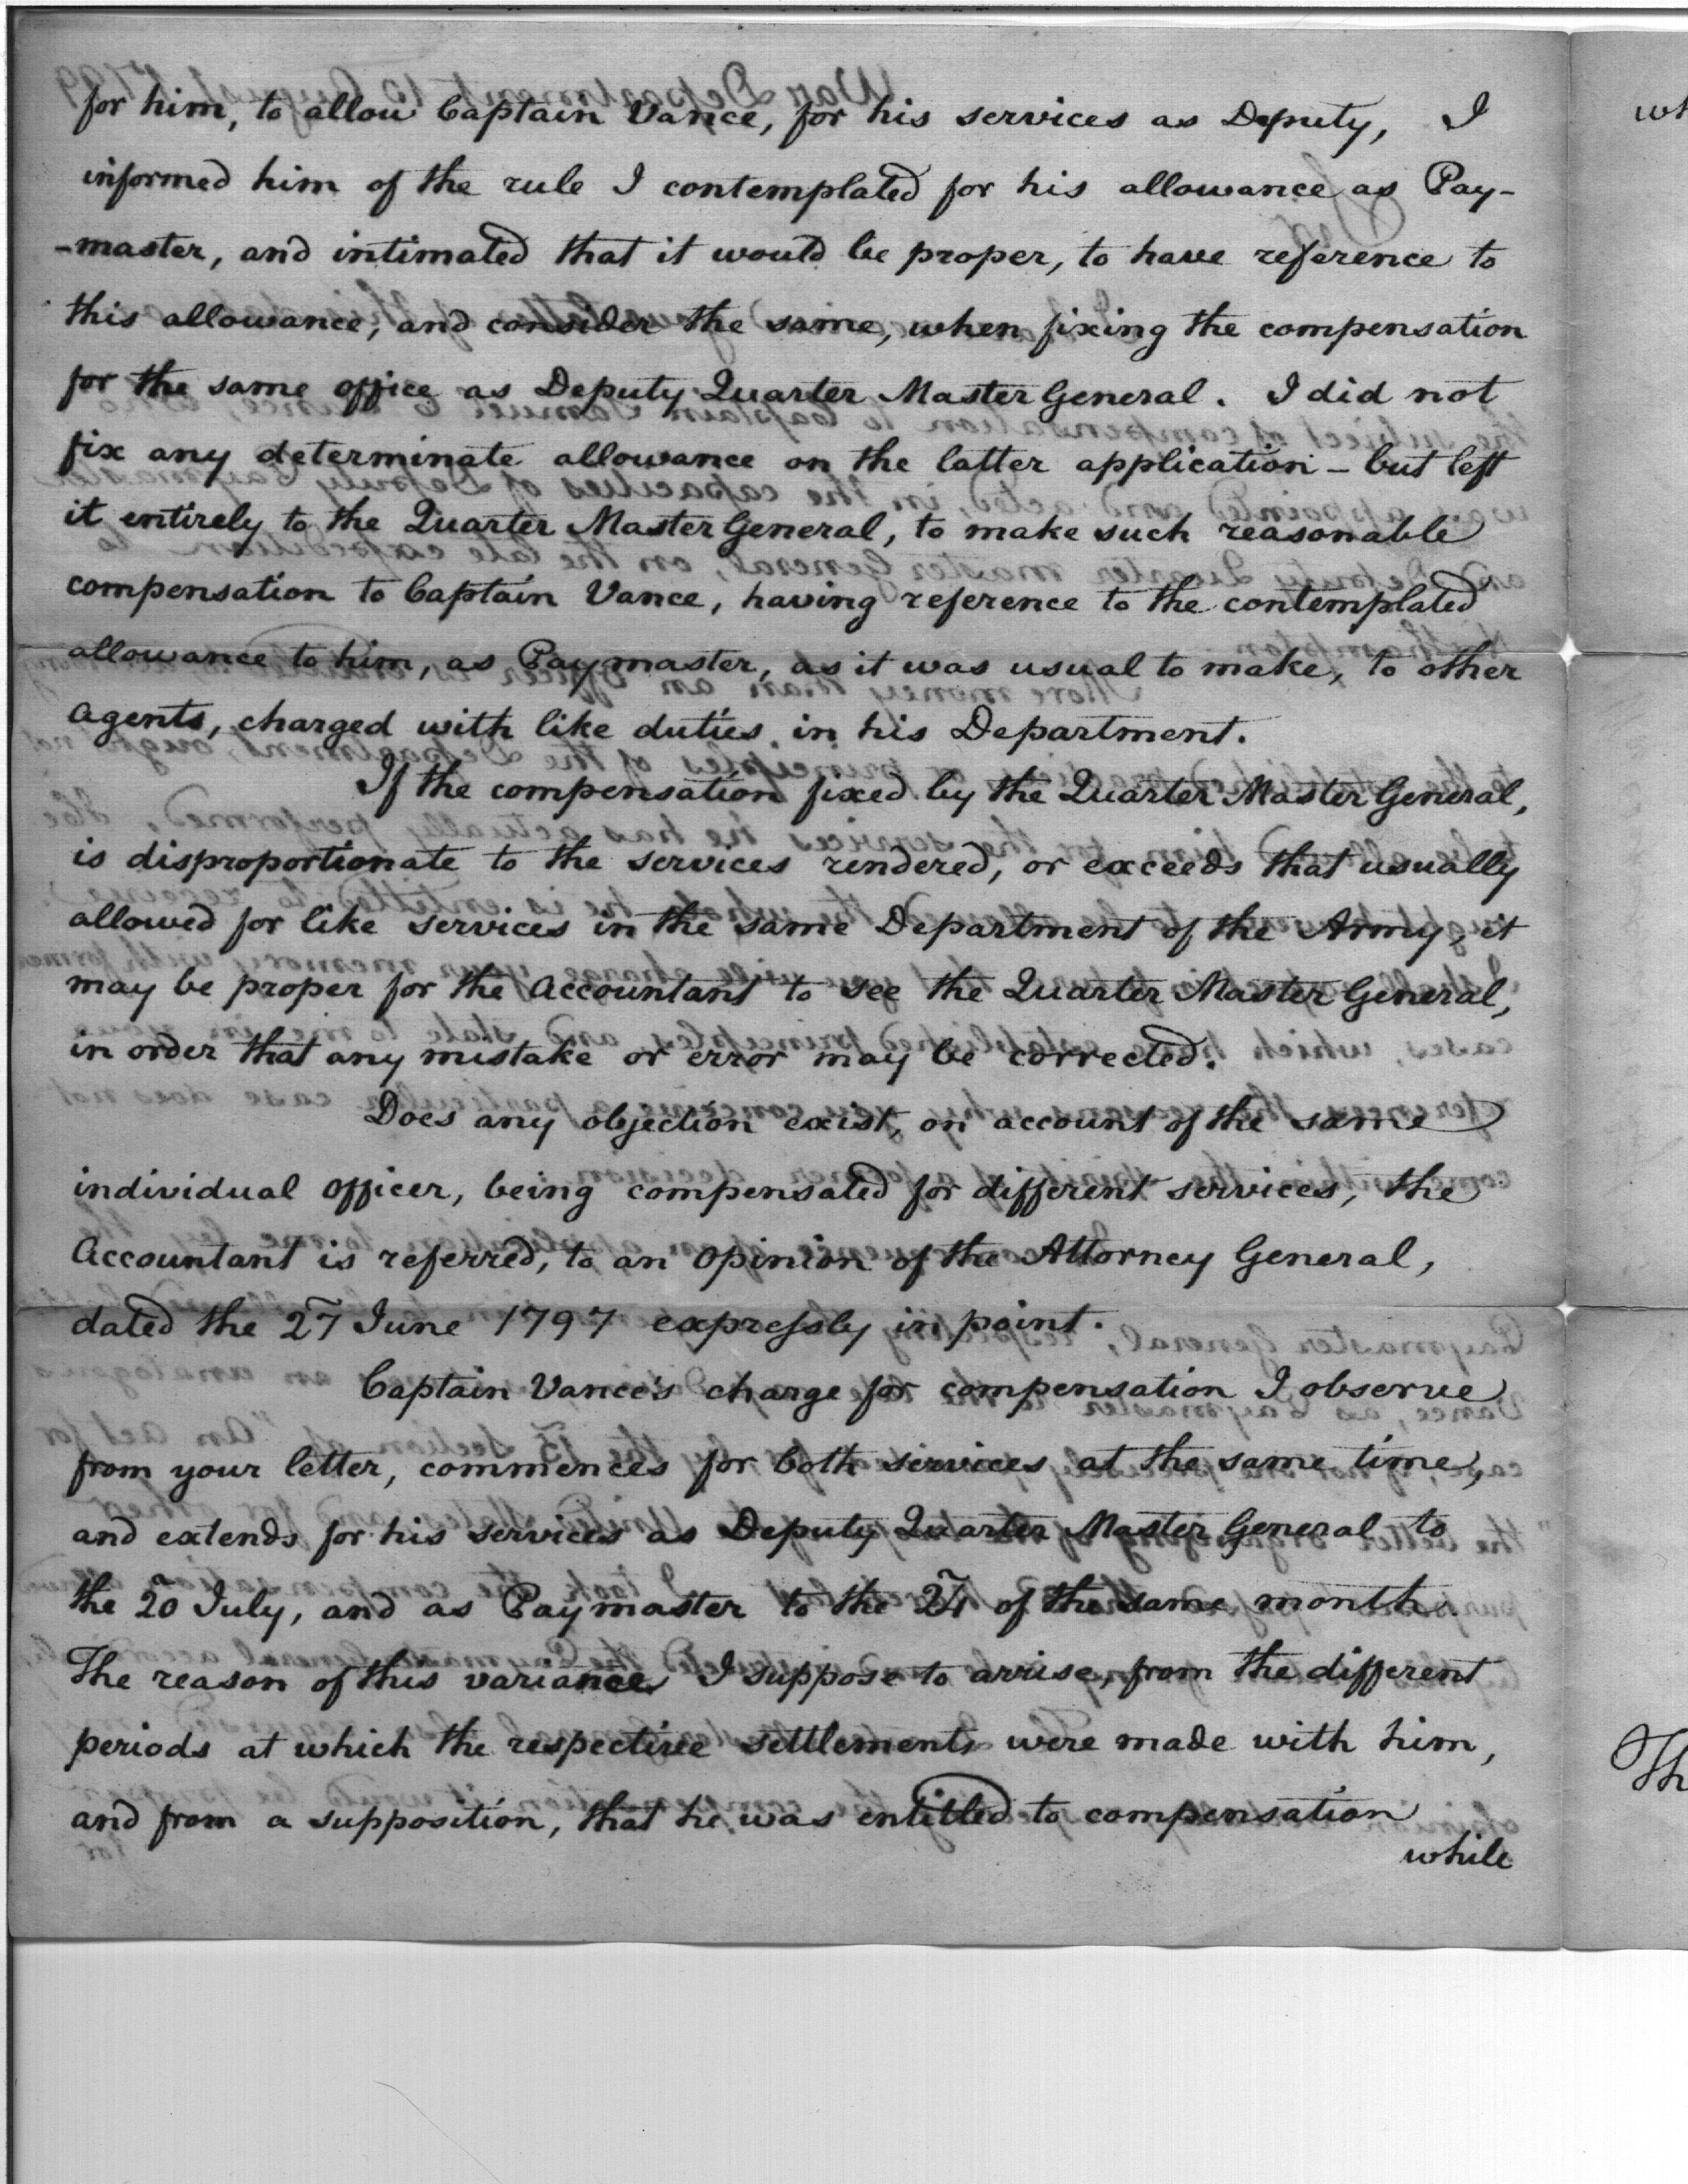 for him, to allow Captain Vance, for his services as Deputy, I
informed him of the rule I contemplated for his allowance as Pay-
-master, and intimated that it would be proper, to have reference to
this allowance, and consider the same, when fixing the compensation
for the same office as Deputy Quarter Master General. I did not
fix any determinate allowance on the latter application - but left
it entirely to the Quarter Master General, to make such reasonable
compensation to Captain Vance, having reference to the contemplated
allowance to him, as Paymaster, as it was usual to make, to other
Agents, charged with like duties in his Department.
If the compensation fixed by the Quarter Master General,
is disproportionate to the services rendered, or exceeds that usually
allowed for like services in the same Department of the Army, it
may be proper for the Accountant to see the Quarter Master General,
in order that any mistake or error may be corrected.
Does any objection exist, on account of the same
individual officer, being compensated for different services, the
Accountant is referred, to an Opinion of the Attorney General,
dated the 27 June 1797 expressly in point.
Captain Vance's charge for compensation I observe
from your letter, commences for both services at the same time,
and extends for his services as Deputy Quarter Master General to
the 20 July, and as Paymaster to the of the same month.
The reason of this variance I suppose to arrise, from the different
periods at which the respective settlements were made with him,
and from a supposition, that he was entitled to compensation
while
wh
Th